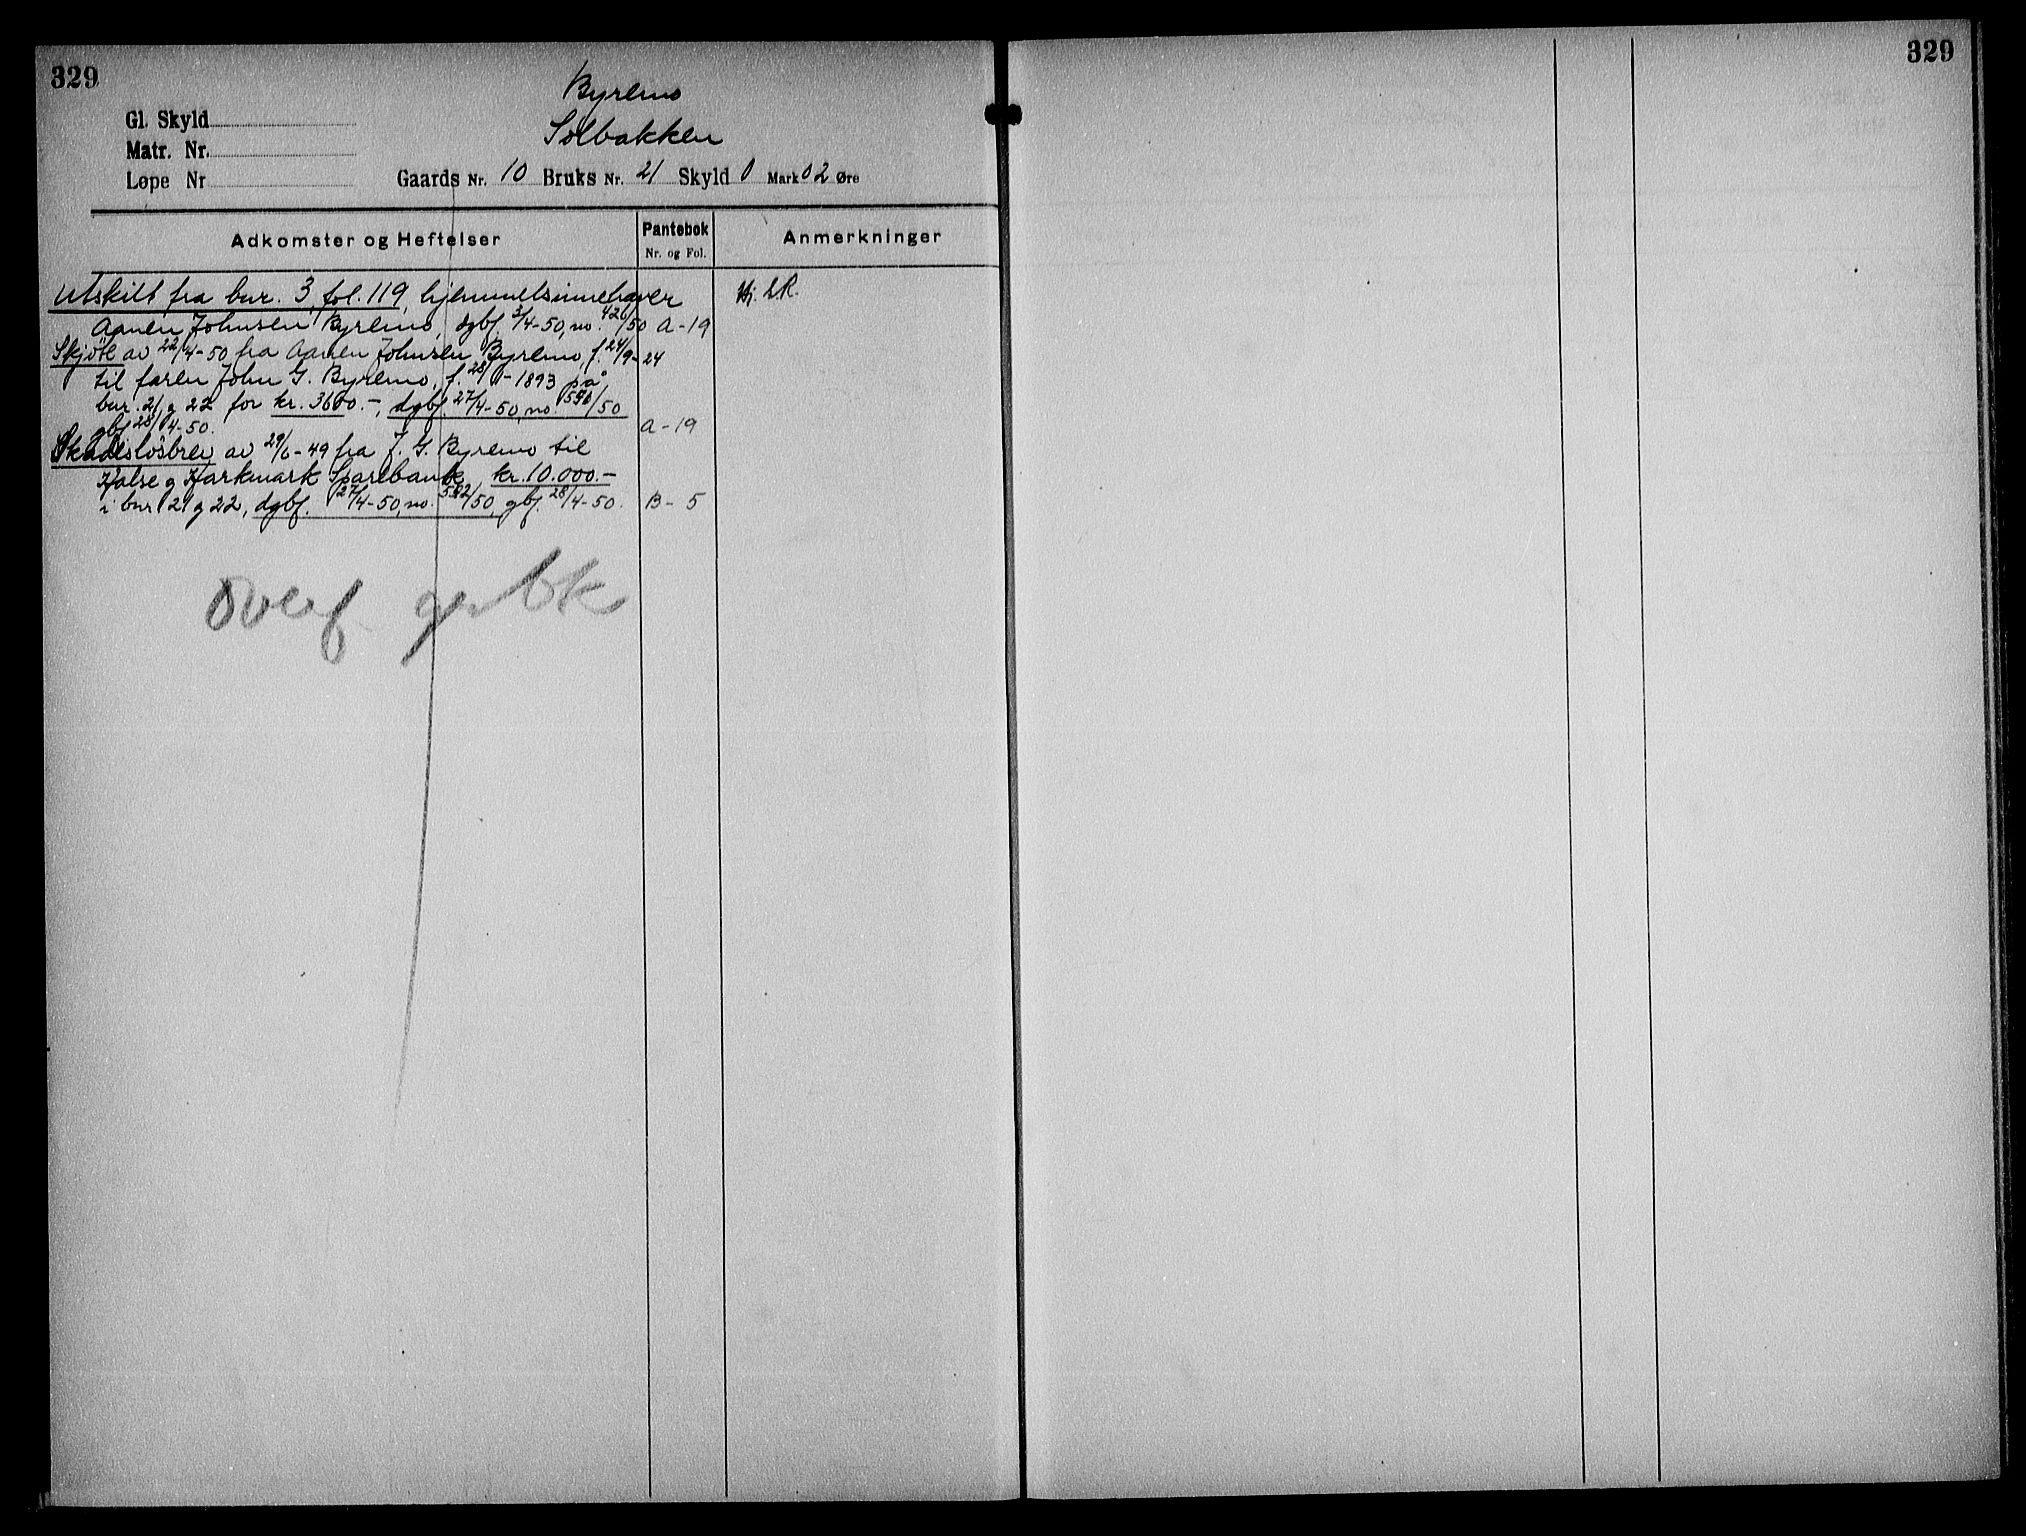 329
329
Byremo
Solbakken
Gl. Skyld
Matr. Nr.
Løpe Nr
Gaards Nr. 10 Bruks Nr. 21 Skyld 0 Mark 02 Øre
Adkomster og Heftelser
Pantebok
Nr. og Fol.
Anmerkninger
Utskilt fra bnr. 3, fol. 119, hjemmelsinnehaver
Aanen Johnsen Byremo, dgbf. 3/4-50, no. 426/50 A-19
Skjöte av 22/4-50 fra Aanen Johnsen Byremo, f. 24/9-24
til faren John G. Byremo, f. 28/1-1893 på
bnr. 21 g 22 for kr. 3600.-, dgbf. 27/4-50, no. 550/50
gbf 28/4-50. A-19
Skadesløsbrev av 29/6-49 fra J. G. Byremo til
Halse g Harkmark Sparebank kr. 10.000.-
i bnr 21 g 22, dgbf. 27/4-50, no. 552/50, gbf. 28/4-50. B-5
Overf. grbk